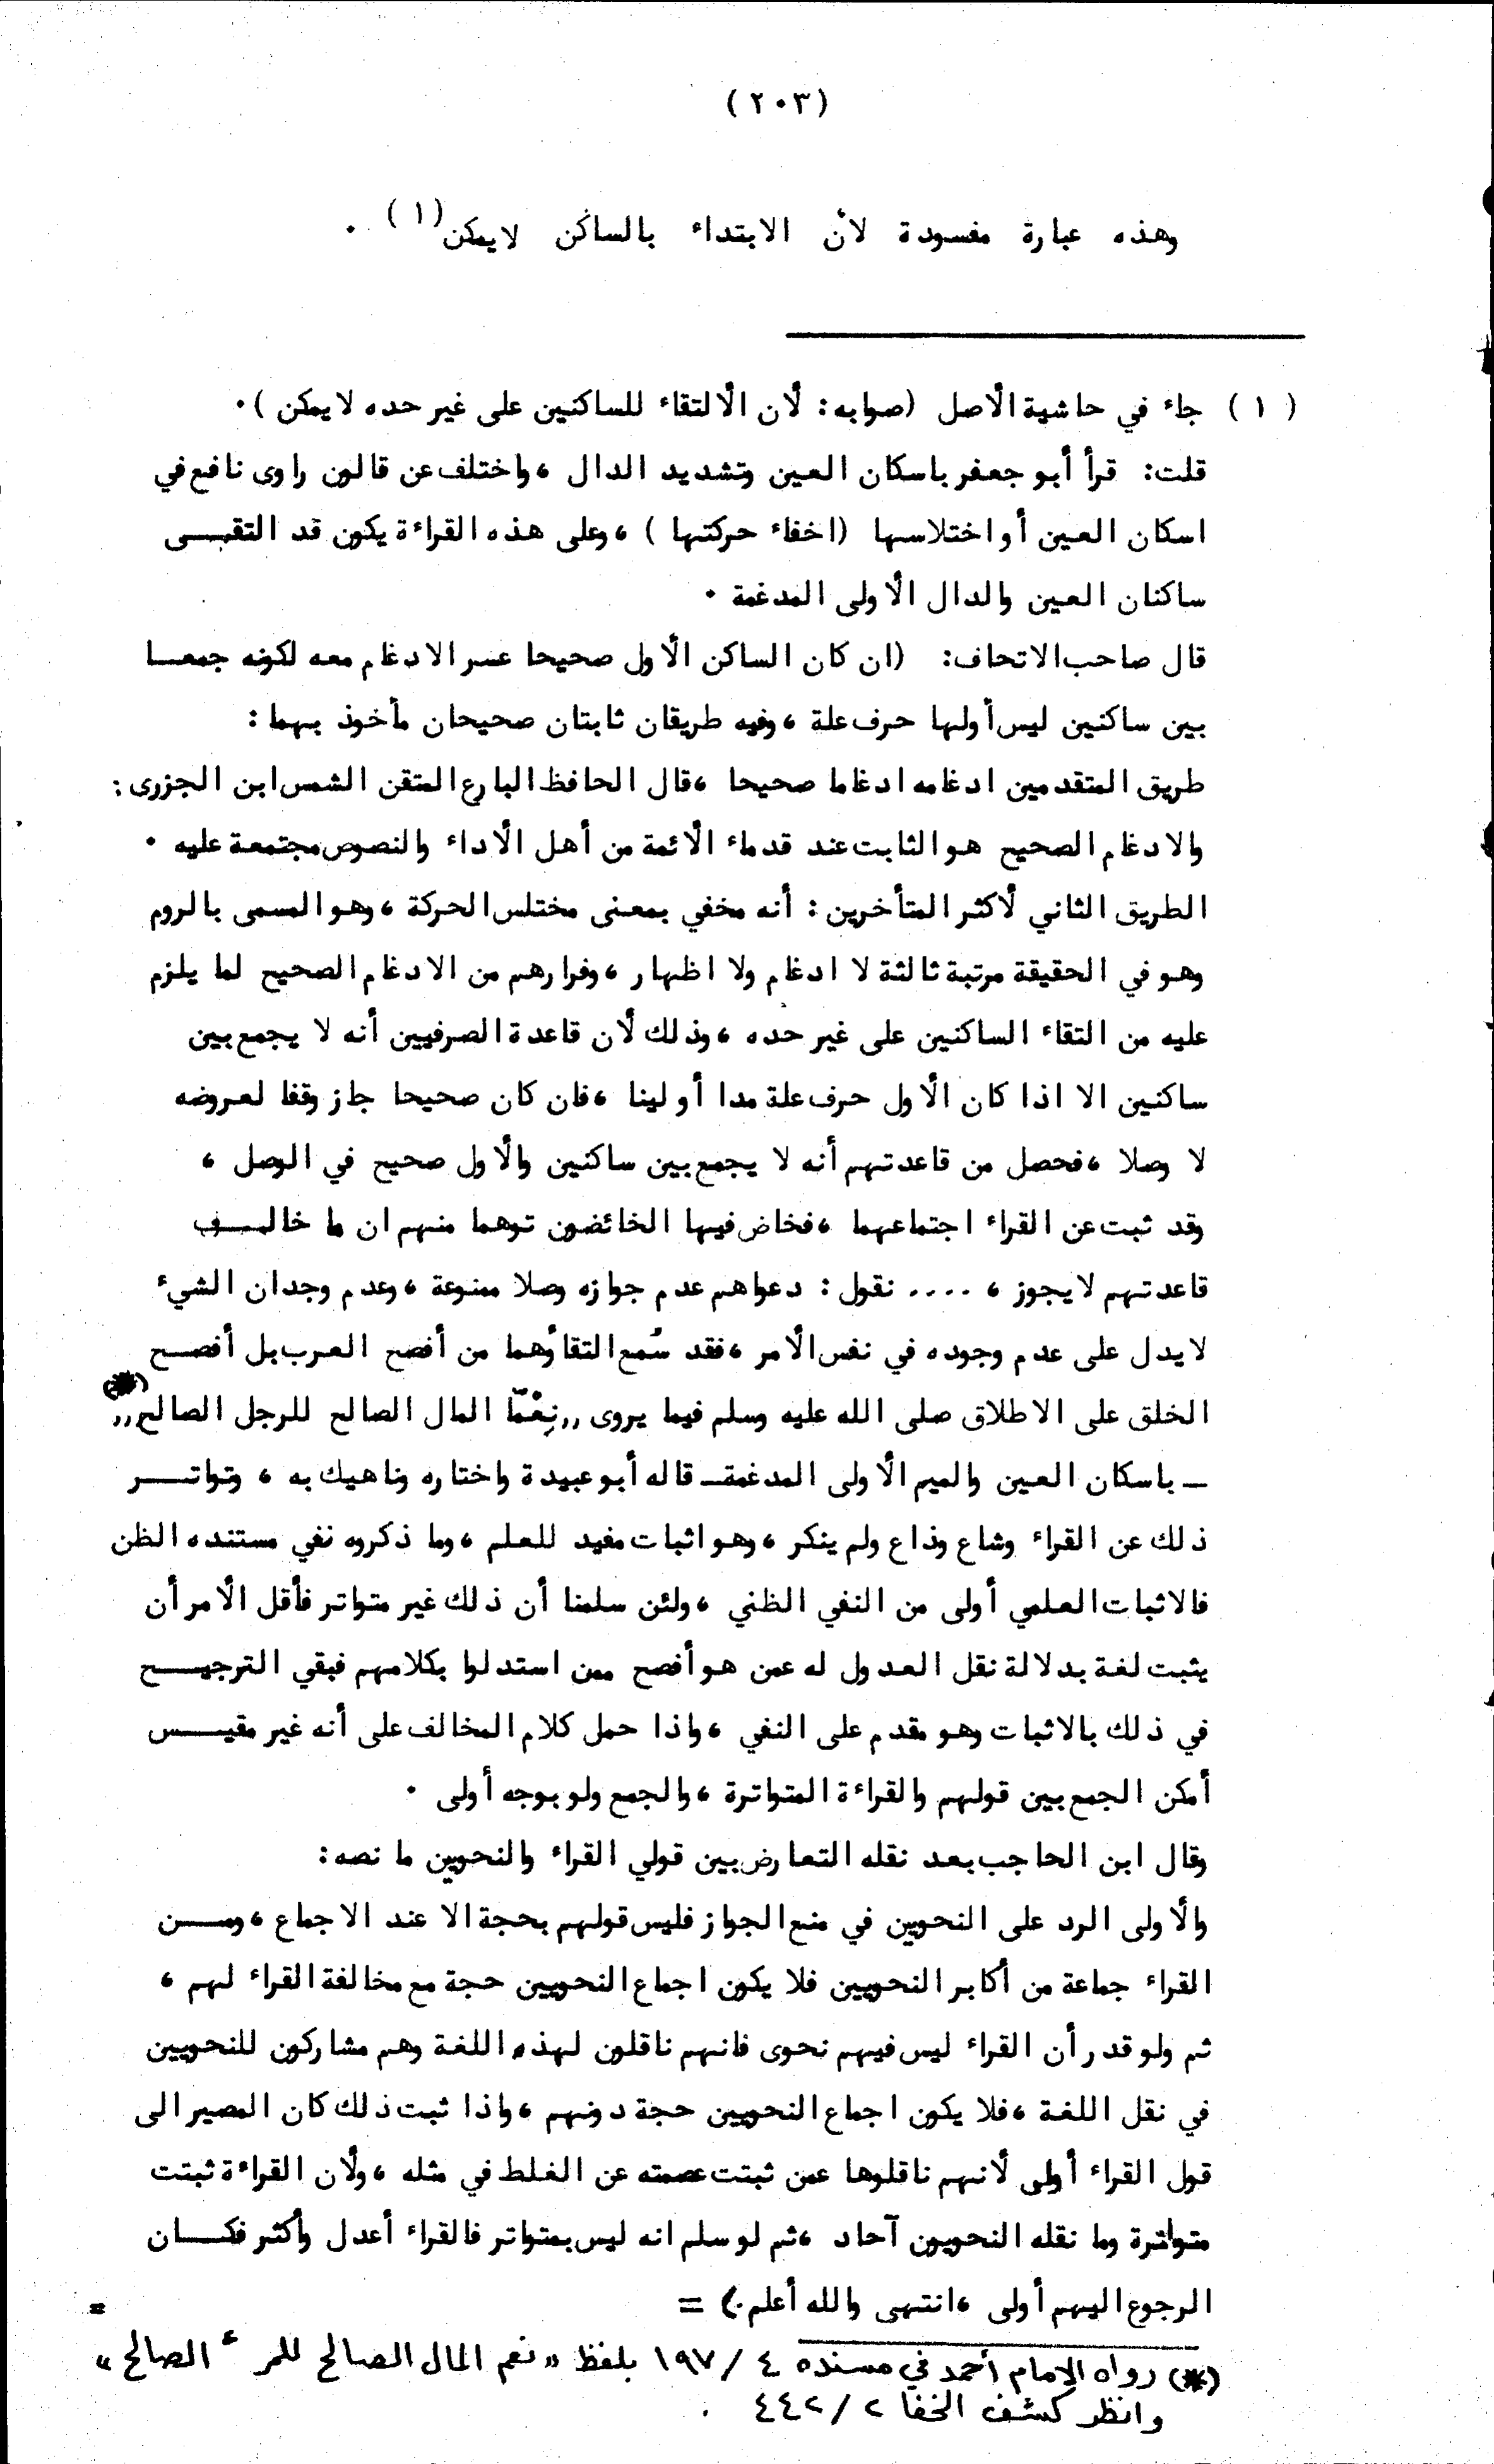 (٢٠٣)
وهذه عبارة مفسودة لأن الابتداء بالساكن لايمكن(١) .
(١) جاء في حاشية الأصل (صوابه: لأن الألتقاء للساكنين على غير حده لايمكن ).
قلت: قرأ أبو جعفر باسكان العين وتشديد الدال ، واختلف عن قالون راوى نافع في
اسكان العين أو اختلاسها (اخفاء حركتها ) ، وعلى هذه القراءة يكون قد التقـــى
ساكنان العين والدال الأولى المدغمة .
قال صاحب الاتحاف: (ان كان الساكن الأول صحيحا عسر الادغام معه لكونه جمعـــا
بين ساكنين ليس أولها حرف علة ، وفيه طريقان ثابتان صحيحان مأخوذ بهما:
طريق المتقدمين ادغامه ادغاما صحيحا ، قال الحافظ البارع المتقن الشمس ابن الجزرى:
والادغام الصحيح هو الثابت عند قدماء الأئمة من أهل الأداء والنصوص مجتمعة عليه .
الطريق الثاني لأكثر المتأخرين: أنه مخفي بمعنى مختلس الحركة ، وهو المسمى بالروم
وهو في الحقيقة مرتبة ثالثة لا ادغام ولا اظهار ، وفرارهم من الادغام الصحيح لما يلزم
عليه من التقاء الساكنين على غير حده ، وذلك لأن قاعدة الصرفيين أنه لا يجمع بين
ساكنين الا اذا كان الأول حرف علة مدا أو لينا ، فان كان صحيحا جاز وقفا لعروضه
لا وصلا ، فحصل من قاعدتهم أنه لا يجمع بين ساكنين والأول صحيح في الوصل ،
وقد ثبت عن القراء اجتماعهما ، فخاض فيها الخائضون توهما منهم ان ما خالـــف
قاعدتهم لايجوز ، .... نقول: دعواهم عدم جوازه وصلا ممنوعة ، وعدم وجدان الشيء
لايدل على عدم وجوده في نفس الأمر ، فقد سُمع التقاؤهما من أفصح العرب بل أفصـــح
الخلق على الاطلاق صلى الله عليه وسلم فيما يروى ,,نِعْمّا المال الصالح للرجل الصالح,,(*)
ــ باسكان العين والميم الأولى المدغمة ــ قاله أبو عبيدة واختاره وناهيك به ، وتواتـــر
ذلك عن القراء وشاع وذاع ولم ينكر ، وهو اثبات مفيد للعلم ، وما ذكروه نفي مستنده الظن
فالاثبات العلمي أولى من النفي الظني ، ولئن سلمنا أن ذلك غير متواتر فأقل الأمر أن
يثبت لغة بدلالة نقل العدول له عمن هو أفصح ممن استدلوا بكلامهم فبقي الترجيـــح
في ذلك بالاثبات وهو مقدم على النفي ، واذا حمل كلام المخالف على أنه غير مقيـــس
أمكن الجمع بين قولهم والقراءة المتواترة ، والجمع ولو بوجه أولى .
وقال ابن الحاجب بعد نقله التعارض بين قولي القراء والنحويين ما نصه:
والأولى الرد على النحويين في منع الجواز فليس قولهم بحجة الا عند الاجماع ، ومـــن
القراء جماعة من أكابر النحويين فلا يكون اجماع النحويين حجة مع مخالفة القراء لهم ،
ثم ولو قدر أن القراء ليس فيهم نحوى فانهم ناقلون لهذه اللغة وهم مشاركون للنحويين
في نقل اللغة ، فلا يكون اجماع النحويين حجة دونهم ، واذا ثبت ذلك كان المصير الى
قول القراء أولى لأنهم ناقلوها عمن ثبتت عصمته عن الغلط في مثله ، ولأن القراءة ثبتت
متواترة وما نقله النحويون آحاد ، ثم لو سلم انه ليس بمتواتر فالقراء أعدل وأكثر فكـــان
الرجوع اليهم أولى ، انتهى والله أعلم.) =
=
(*) رواه الإمام أحمد في مسنده ٤ / ١٩٧ بلفظ «نعم المال الصالح للمرء الصالح»
وانظر كشف الخفا ٢ / ٤٤٢ .